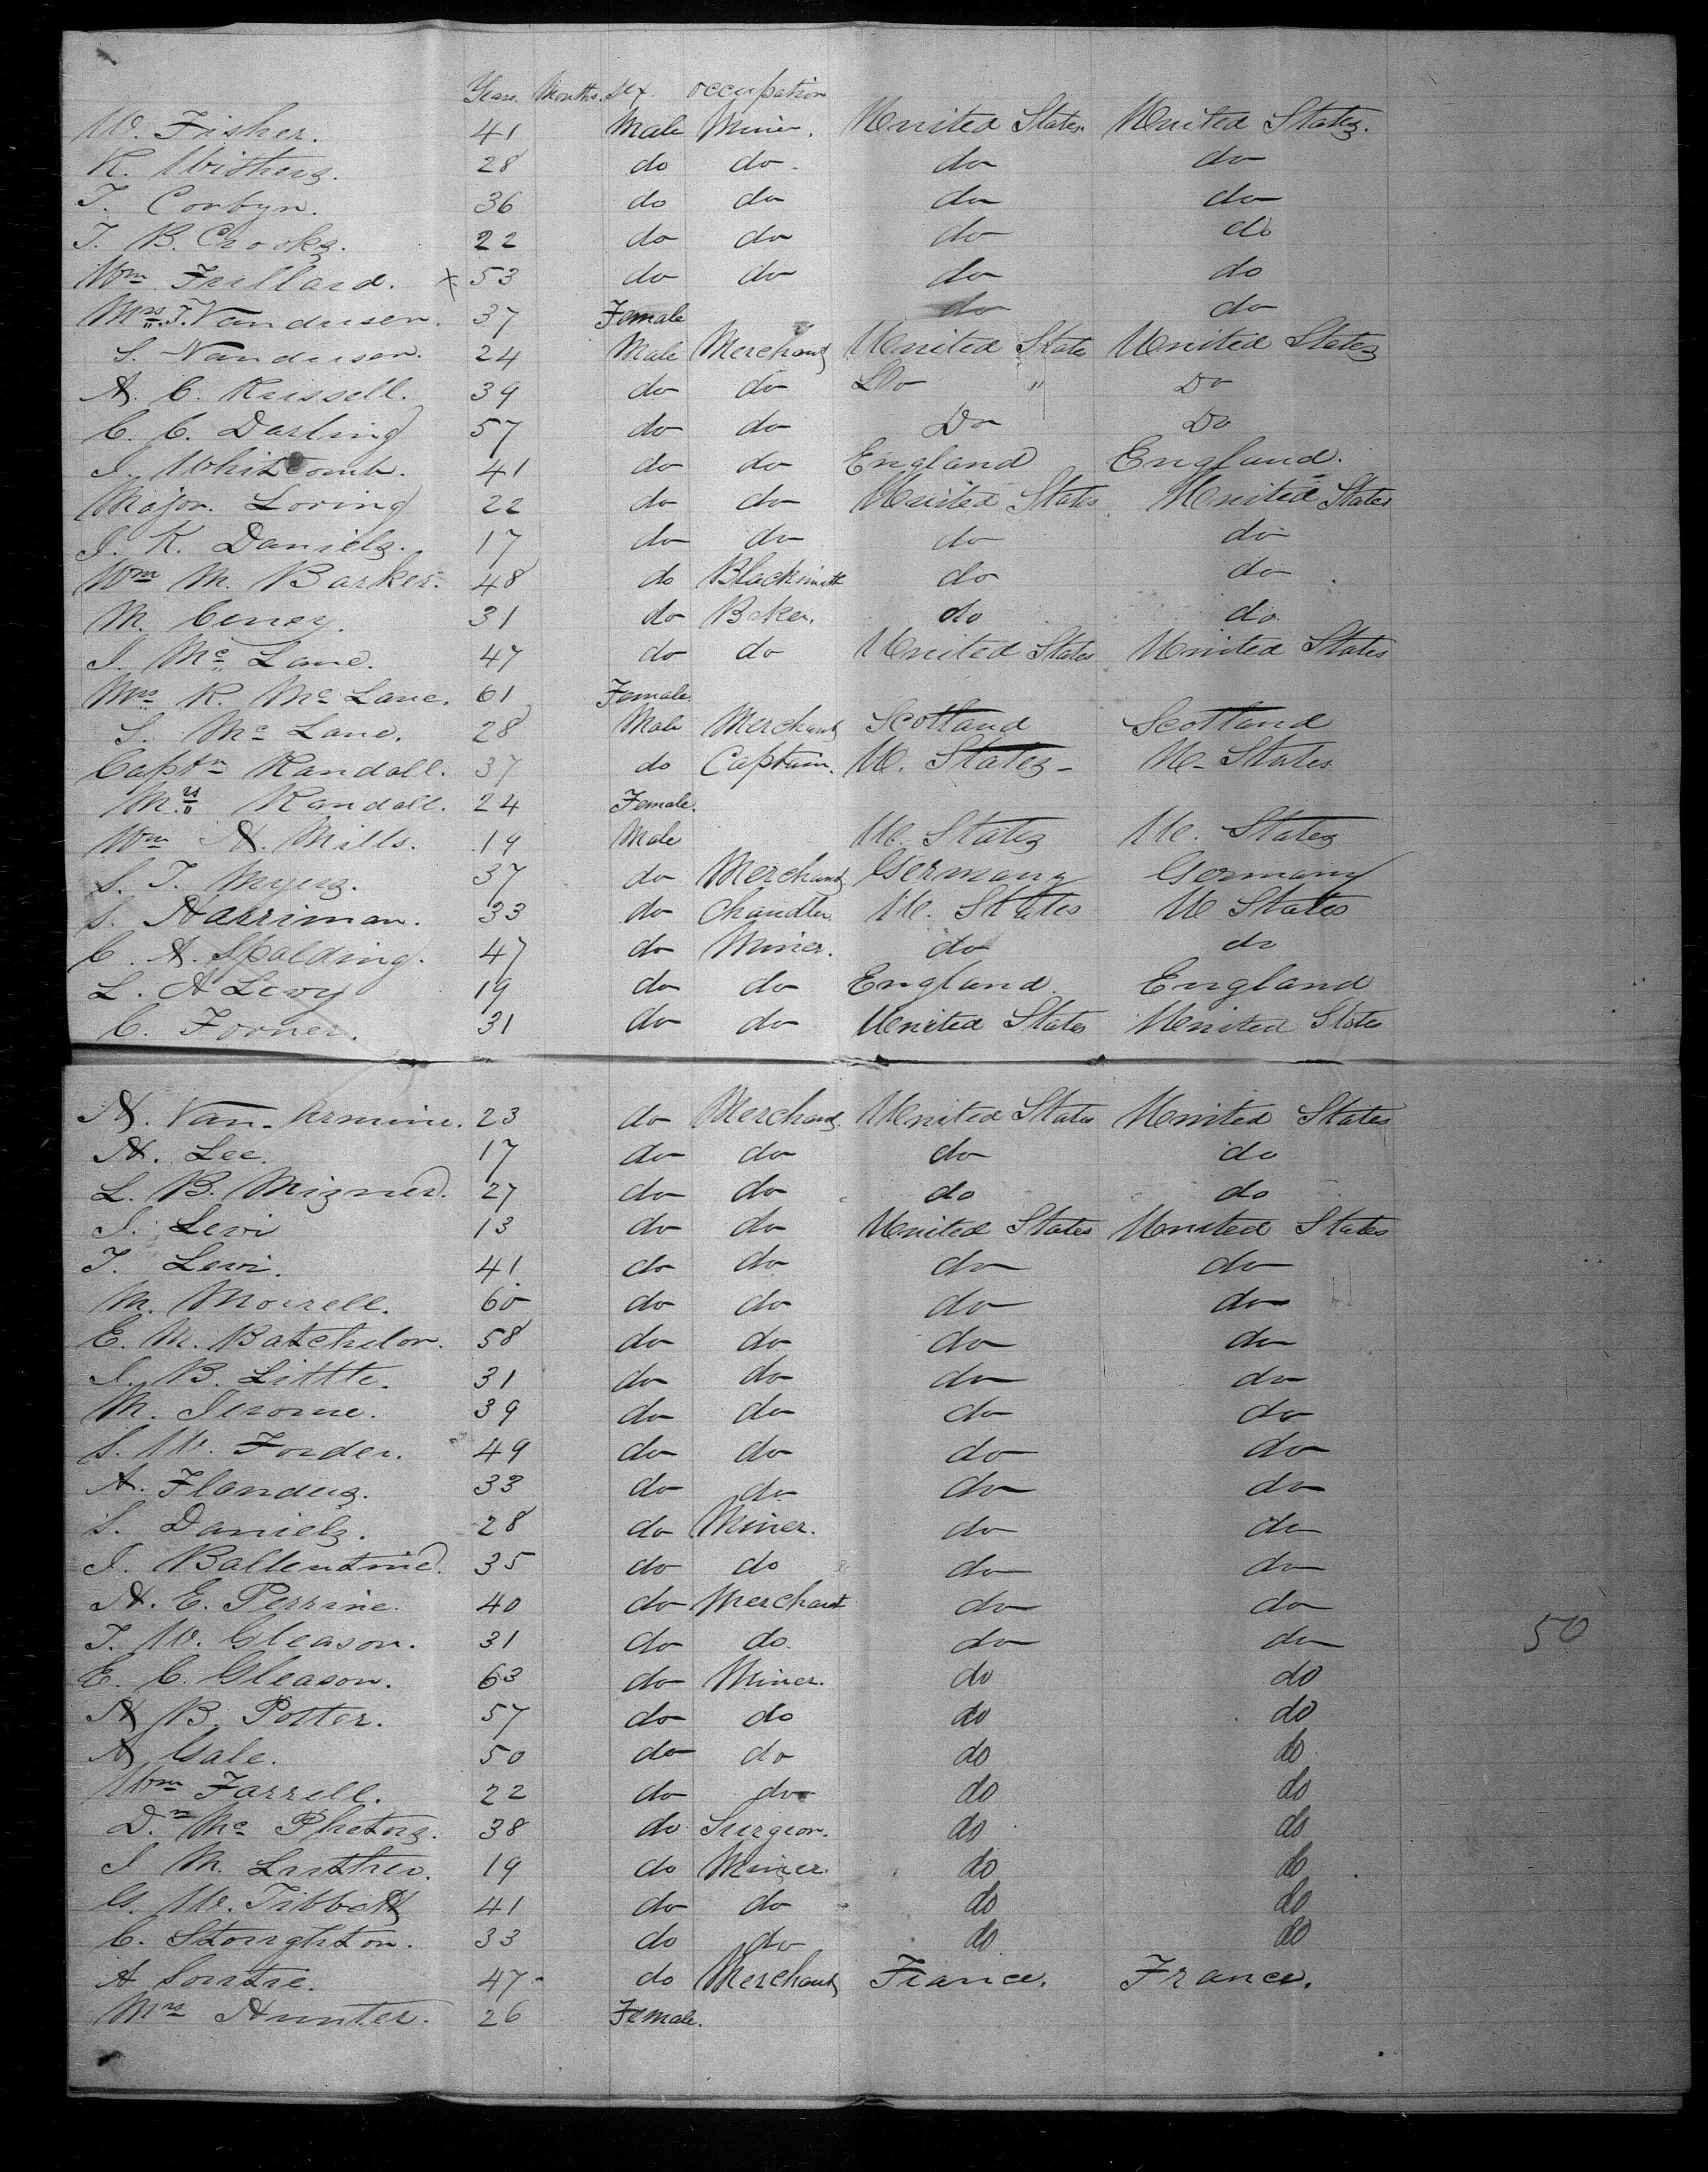 Years. Months. Sex. occupation
W. Fisher. 41 Male Miner. United States. United States.
R. Withers. 28 do do. do do
T. Corbyn. 36 do do do do
T. B. Crooks. 22 do do do do
Wm Frillard. x 53 do do do do
Mrs. T. Vandusen. 37 Female do do
S. Vandusen. 24 Male Merchant United State United States
A. C. Russell. 39 do do Do " Do
C. C. Darling 57 do do Do Do
J. Whitcomb. 41 do do England England.
Major. Loring 22 do do United States United States
J. R. Daniels. 17 do do do do
Wm M. Barker. 48 do Blacksmith do do
M. Ceney. 31 do Baker. do do
J. Mc Lane. 47 do do United States United States
Mrs R. Mc Lane. 61 Female.
S. Mc Lane. 28 Male Merchant Scotland Scotland
Captn Randall. 37 do Captain. U. States - U. States
Mrs Randall. 24 Female.
Wm H. Mills. 19 Male U. States U. States
S. T. Myers. 37 do Merchant Germany Germany
S. Harriman. 33 do Chandler U. States U States
C. H. Spalding. 47 do Miner. do do
L. A Levy 19 do do England. England
C. Forner. 31 do do United States United States
H. Van. Armine. 23 do Merchant. United States United States
H. Lee. 17 do do do do
L. B. Mizner. 27 do do do do
J. Levi 13 do do United States United States
T. Levi. 41. do do do do
M. Morrell. 60 do do do do
E. M. Batchelor. 58 do do do do
J. B. Little. 31 do do do do
M. Jerome. 39 do do do do
S. W. Forder. 49 do do do do
A. Flanders. 33 do do do do
S. Daniels. 28 do Miner. do do
J. Ballentine. 35 do do do do
H. E. Perrine. 40 do Merchant do do
T. W. Gleason. 31 do do. do do 50
E. C. Gleason. 63 do Miner. do do
H B. Potter. 57 do do do do
A Gale. 50 do do do do
Wm Farrell. 22 do do do do
Dr Mc Pheters. 38 do Surgeon. do do
J M. Luther. 19 do Miner do do
G. W. Tibbatts 41 do do do do
C. Stoughton. 33 do do do do
A Soutrie. 47 do Merchant France. France.
Mrs Hunter. 26 Female.